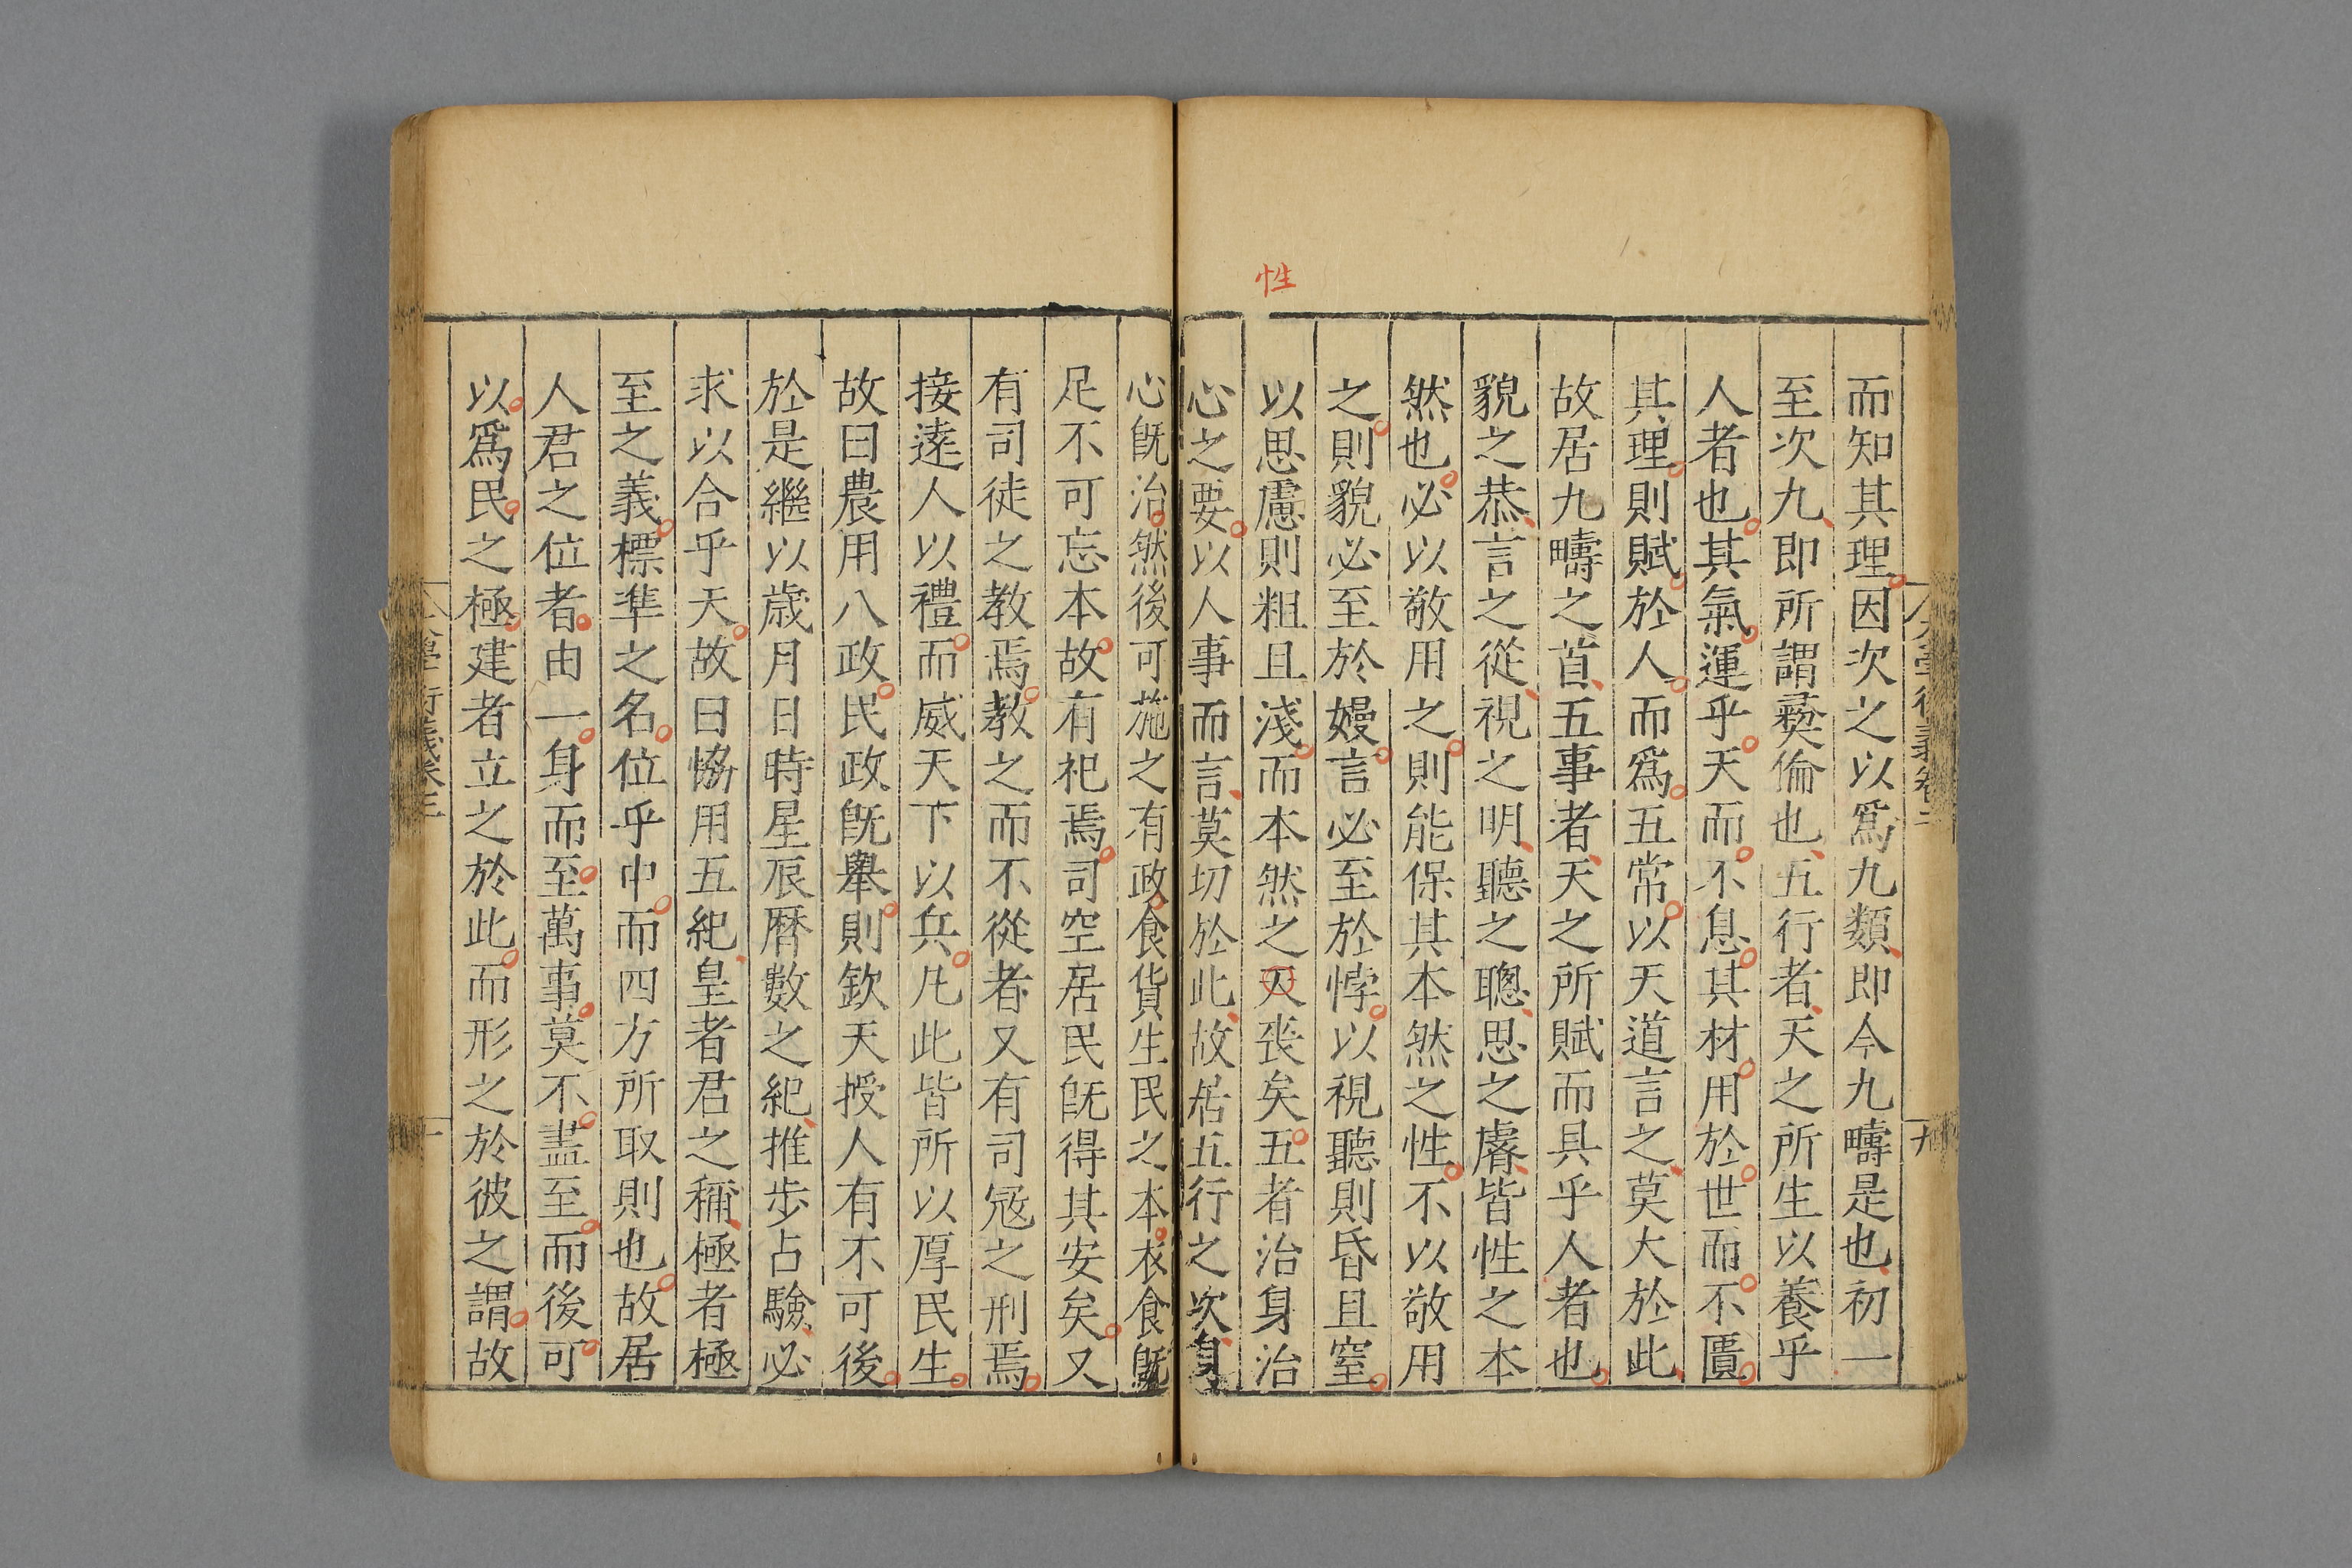 而知其理因次之以爲九類即今九疇是也初一
至次九即所謂彛倫也五行者天之所生以養乎
人者也其氣運乎天而不息其材用於世而不匱
其理則賦於人而爲五常以天道言之莫大於此
故居九疇之首五事者天之所賦而具乎人者也
貌之恭言之從視之明聽之聰思之睿皆性之本
然也必以敬用之則能保其本然之性不以敬用
之則貌必至於嫚言必至於悖以視聽則昏且窒
性
以思慮則粗且淺而本然之㓁喪矣五者治身治
心之要以人事而言莫切於此故居五行之次身
心旣治然後可施之有政食貨生民之本衣食旣
足不可忘本故有祀焉司空居民旣得其安矣又
有司徒之教焉教之而不從者又有司冦之刑焉
接遠人以禮而威天下以兵凡此皆所以厚民生
故曰農用八政民政旣舉則欽天授人有不可後
於是繼以歳月日時星辰曆數之紀推歩占驗必
求以合乎天故曰恊用五紀皇者君之稱極者極
至之義標準之名位乎中而四方所取則也故居
人君之位者由一身而至萬事莫不盡至而後可
以爲民之極建者立之於此而形之於彼之謂故